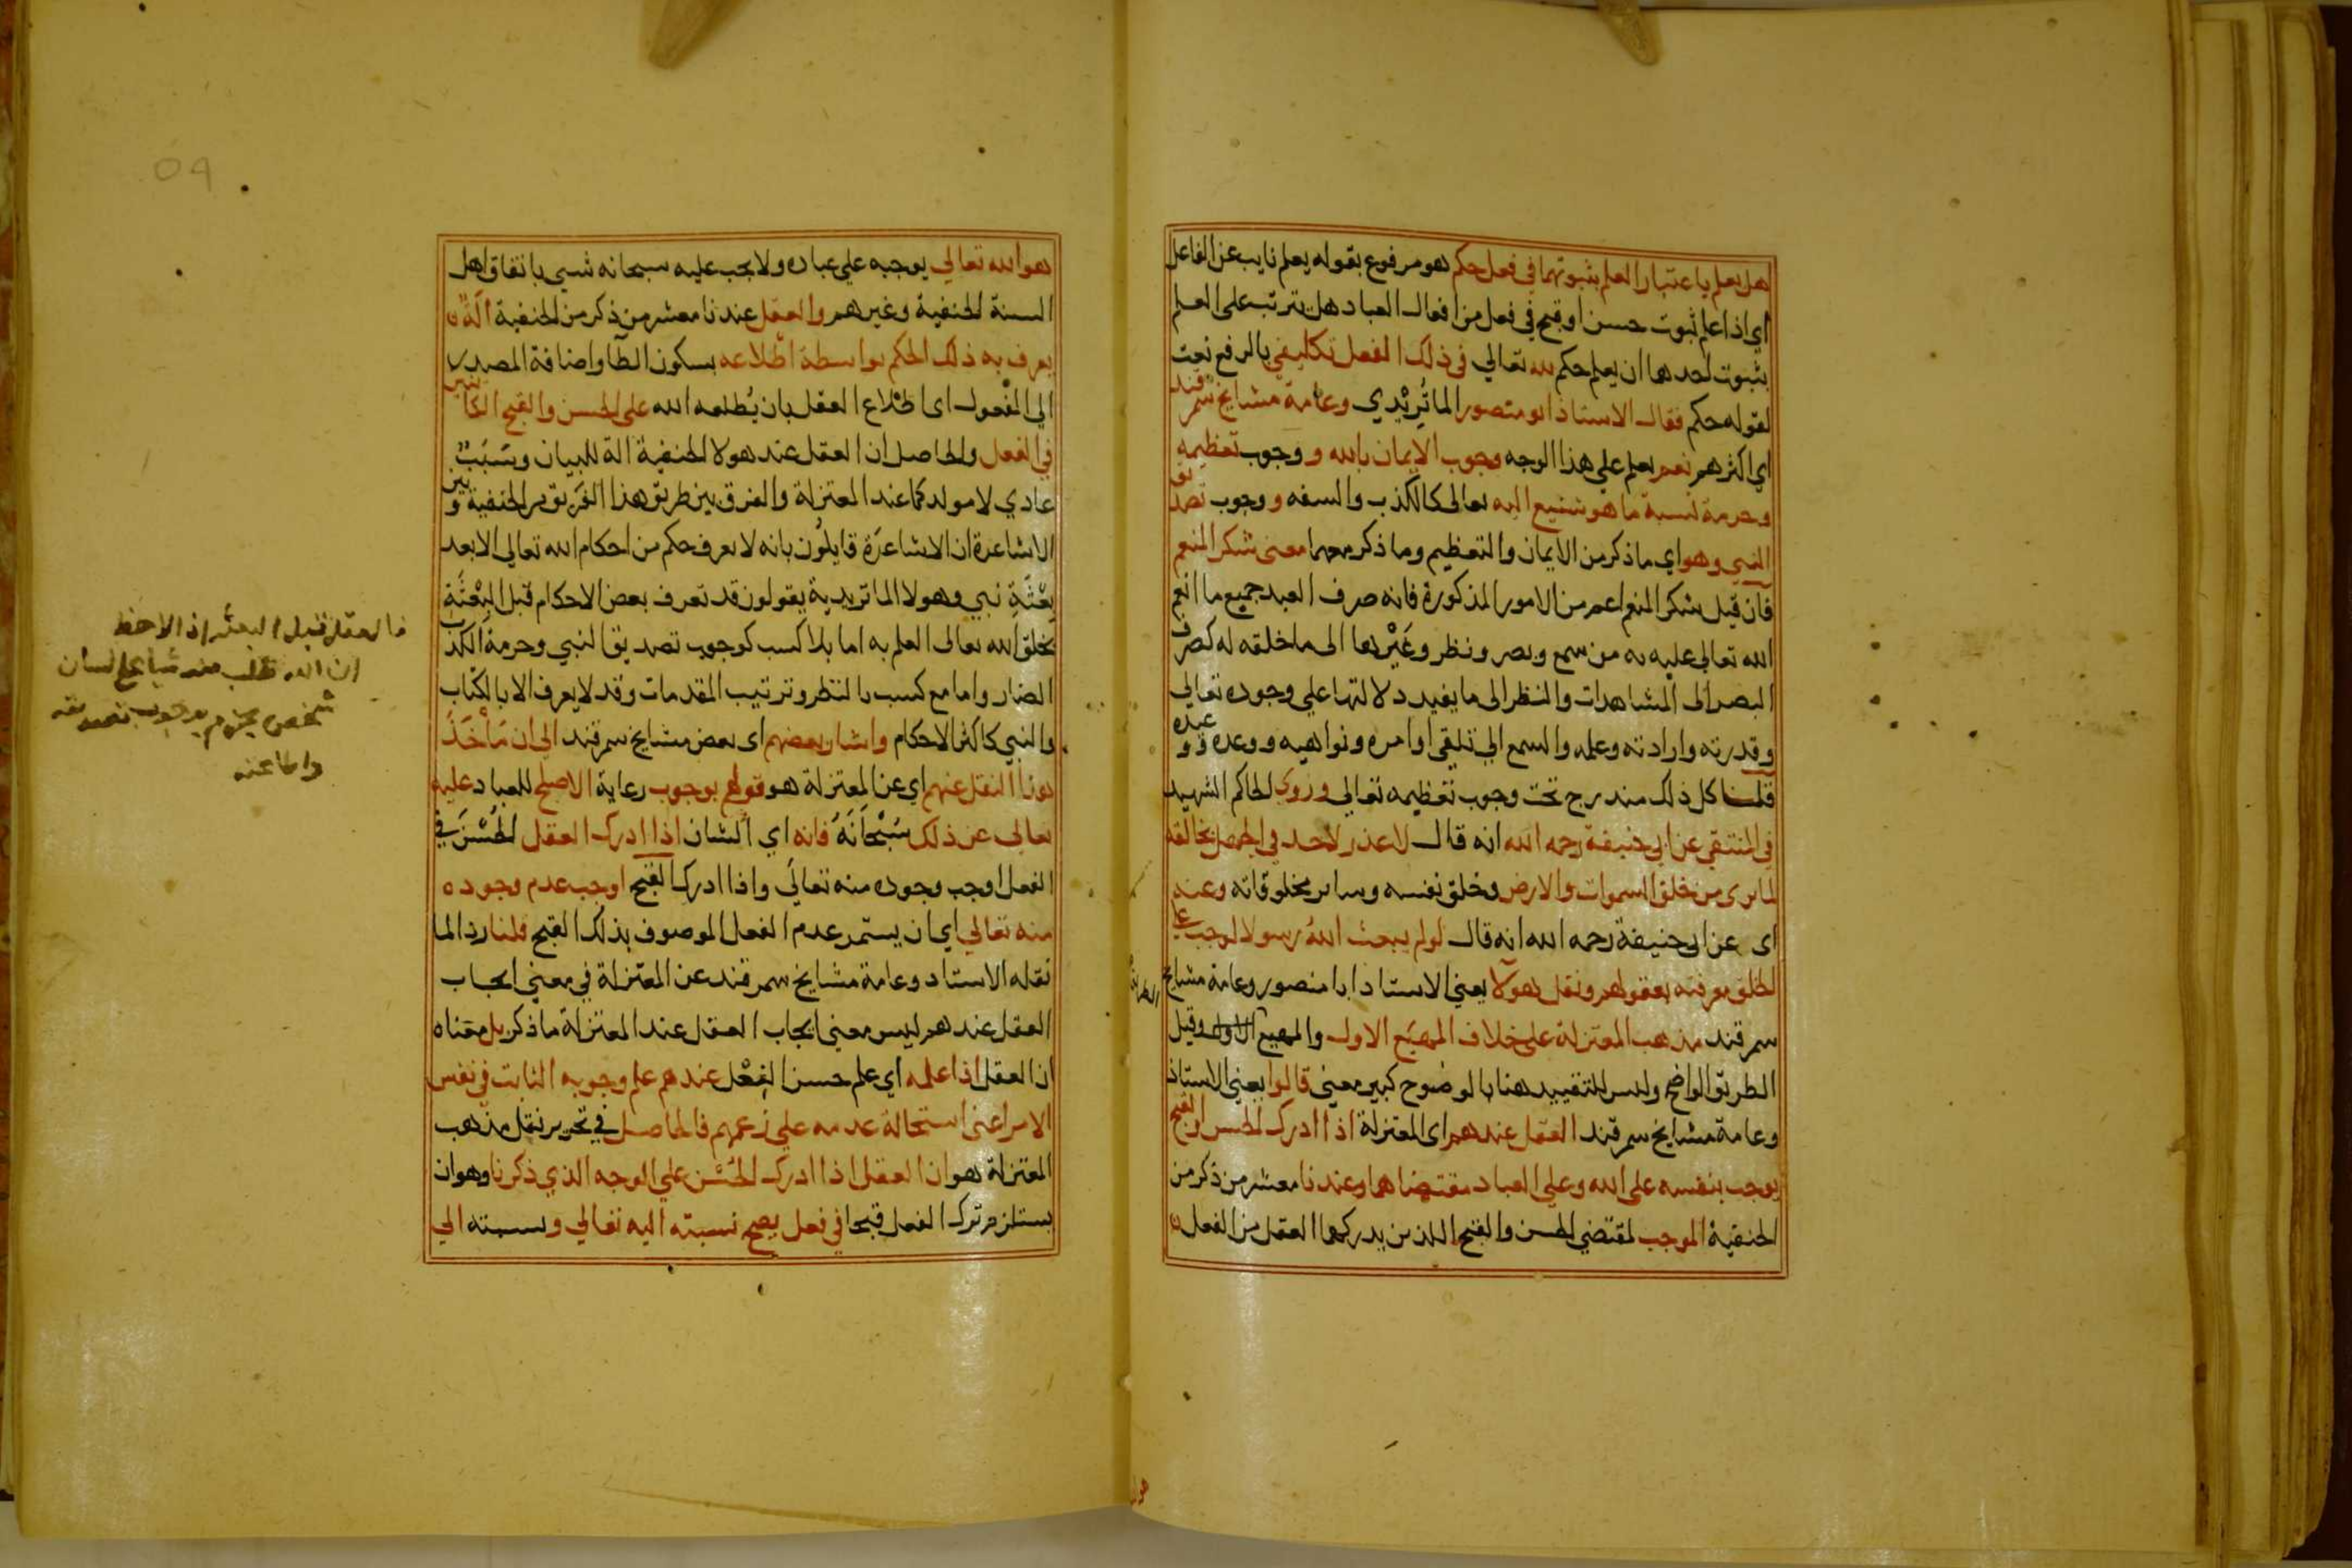 هل يعلم باعتبار العلم بثبوتهما في فعل حكم هو مرفوع بقوله يعلم نايب عن الفاعل
اي اذا علم ثبوت حسن او قبح في فعل من افعال العباد هل يترتب على العلم
بثبوت احدهما ان يعلم حكم لله تعالي في ذلك الفعل تكليفي بالرفع نعت
لقوله حكم فقال الاستاذ ابو منصور الماتُرِيْدي وعامة مشايخ سمرقند
اي اكثرهم نعم يعلم علي هذا الوجه وجوب الايمان بالله و وجوب تعظيمه
وحرمة نسبة ما هو شنيع اليه تعالى كالكذب والسفه و وجوب تصديق
النبي وهو اي ما ذكر من الايمان والتعظيم وما ذكر معهما معنى شكر المنعم
فان قيل شكر المنعم اعم من الامور المذكورة فانه صرف العبد جميع ما انعم
الله تعالي عليه به من سمع وبصر ونظر وغَيْرها الى ما خلقه له كصرف
البصر الى المشاهدات والنظر الى ما يفيد دلالتها علي وجوده تعالي
وقدرته وارادته وعلمه والسمع الي تلقي اوامره ونواهيه ووعده ووعيده
قلنا كل ذلك مندرج تحت وجوب تعظيمه تعالي وروى الحاكم الشهيد
في المنتقي عن ابي حنيفة رحمه الله انه قال لا عذر لاحد في الجهل بخالقه
لما يرى من خلق السموات والارض وخلق نفسه وساير مخلوقاته وعنه
اى عن ابي حنيفة رحمه الله انه قال لو لم يبعث اللهُ رسولا لوجب علي
الخلق معرفته بعقولهم ونقل هولا يعني الاستاد ابا منصور وعامة مشايخ
سمرقند مذهب المعتزلة على خلاف المهيَع الاول والمهيع وقيل
الطريق الواضح وليس للتقييد هنا بالوضوح كبير معنى قالوا يعني الاستاذ
وعامة مشايخ سمرقند العقل عندهم اى المعتزلة اذا ادرك الحسن او القبح
يوجب بنفسه على الله وعلي العباد مقتضاهما وعندنا معشر من ذكر من
الحنفية الموجب لمقتضي الحسن والقبح اللذين يدركهما العقل من الفعل
الطريق
هو الله
هو الله تعالي يوجبه علي عباده ولا يجب عليه سبحانه شي باتفاق اهل
السنة الحنفية وغيرهم والعقل عندنا معشر من ذكر من الحنفية آلةٌ
يعرف به ذلك الحكم بواسطة اطْلاعه بسكون الطا واضافة المصدر
الي المفعول اى اطْلاع العقل بان يُطلعه الله على الحسن والقبح الكاينين
في الفعل والحاصل ان العقل عند هولا الحنفية آلة للبيان وسَبَبٌ
عادي لا مولد كما عند المعتزلة والفرق بين طريق هذا الفريق من الحنفية وبين
الاشاعرة ان الاشاعرَة قايلُون بانه لا يعرف حكم من احكام الله تعالي الا بعد
بِعْثَةِ نبي وهولا الماتريدية يقولون قد تعرف بعض الاحكام قبل البِعْثَةِ
بخلق الله تعالى العلم به اما بلا كسب كوجوب تصديق النبي وحرمة الكذب
الضار واما مع كسب بالنظر وترتيب المقدمات وقد لا يعرف الا بالكتاب
والنبي كاكثر الاحكام واشار بعضهم اى بعض مشايخ سمرقند الي ان مَأْخَذَ
هذا النقل عنهم اي عن المعتزلة هو قولهم بوجوب رعاية الاصلح للعباد عليه
تعالى عن ذلك سُبْحَانَهُ فانه اي الشان اذا ادرك العقل الحُسْنَ في
الفعل اوجب وجوده منه تعالَي واذا ادرك القبح اوجب عدم وجوده
منه تعالي اي ان يستمر عدم الفعل الموصوف بذلك القبح قلنا ردا لما
نقله الاستاد وعامة مشايخ سمرقند عن المعتزلة في معني ايجاب
العقل عندهم ليس معني ايجاب العقل عند المعتزلة ما ذكر بل معناه
ان العقل اذا علمه اي علم حسن الفِعْل عندهم علم وجوبه الثابت في نفس
الامر اعني استحالة عدمه علي زعمهم فالحاصل في تحرير نقل مذهب
المعتزلة هو ان العقل اذا ادرك الحُسْن علي الوجه الذي ذكرنا وهو ان
يستلزم ترك الفعل قبحا في فعل يصح نسبته اليه تعالي ونسبته الي
فالعقل قبل البعثة اذا لاحظ
ان الله طلب منه شيا على لسان
شخص يجزم بوجوب تصديقه
واطاعته
59